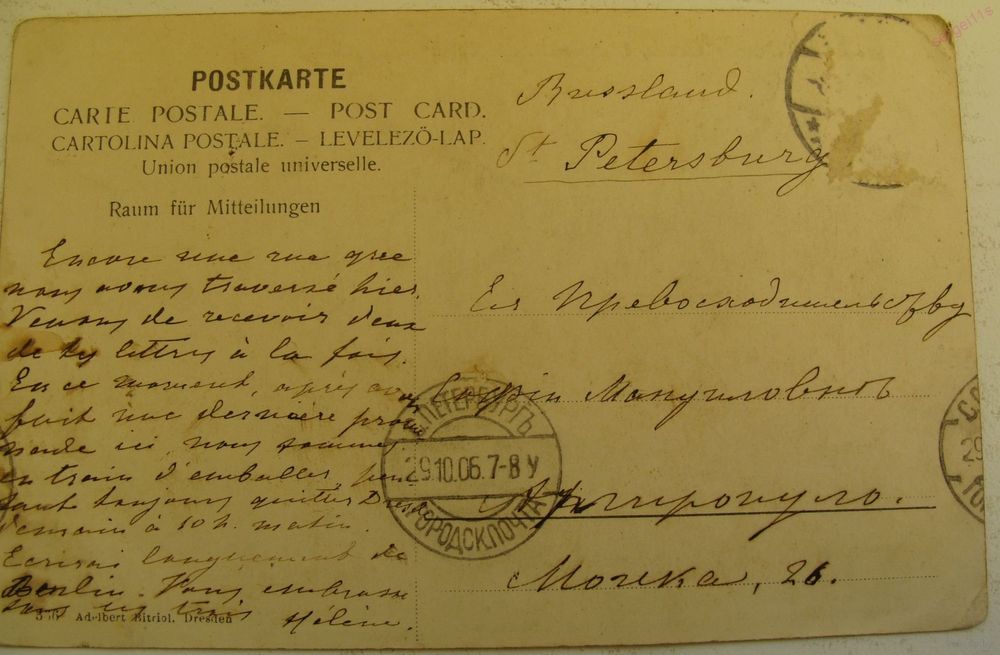 POSTKARTE
CARTE POSTALE. — POST CARD.
CARTOLINA POSTALE. – LEVELEZÖ-LAP.
Union postale universelle.
Raum für Mitteilungen
Encore une rue que
nous avons traversé hier.
Venons de recevoir deux
de tes lettres à la fois.
En ce moment, après avoir
fait une dernière prome
nade ici, nous sommes
en train d'emballer,
tant toujours quitter Dresde
demain à 10 h. matin.
Ecrirai longuement de
Berlin. Vous embrasse
tous les trois
Hélène.
Adelbert Bitriol. Dresden
Russland.
St Petersburg
Ея Превосходительству
Софіи Мануиловнѣ
Мойка, 26.
С.ПЕТЕРБУРГЪ
29.10.06.7-8 У
ГОРОДСК.ПОЧТА
sergei11s